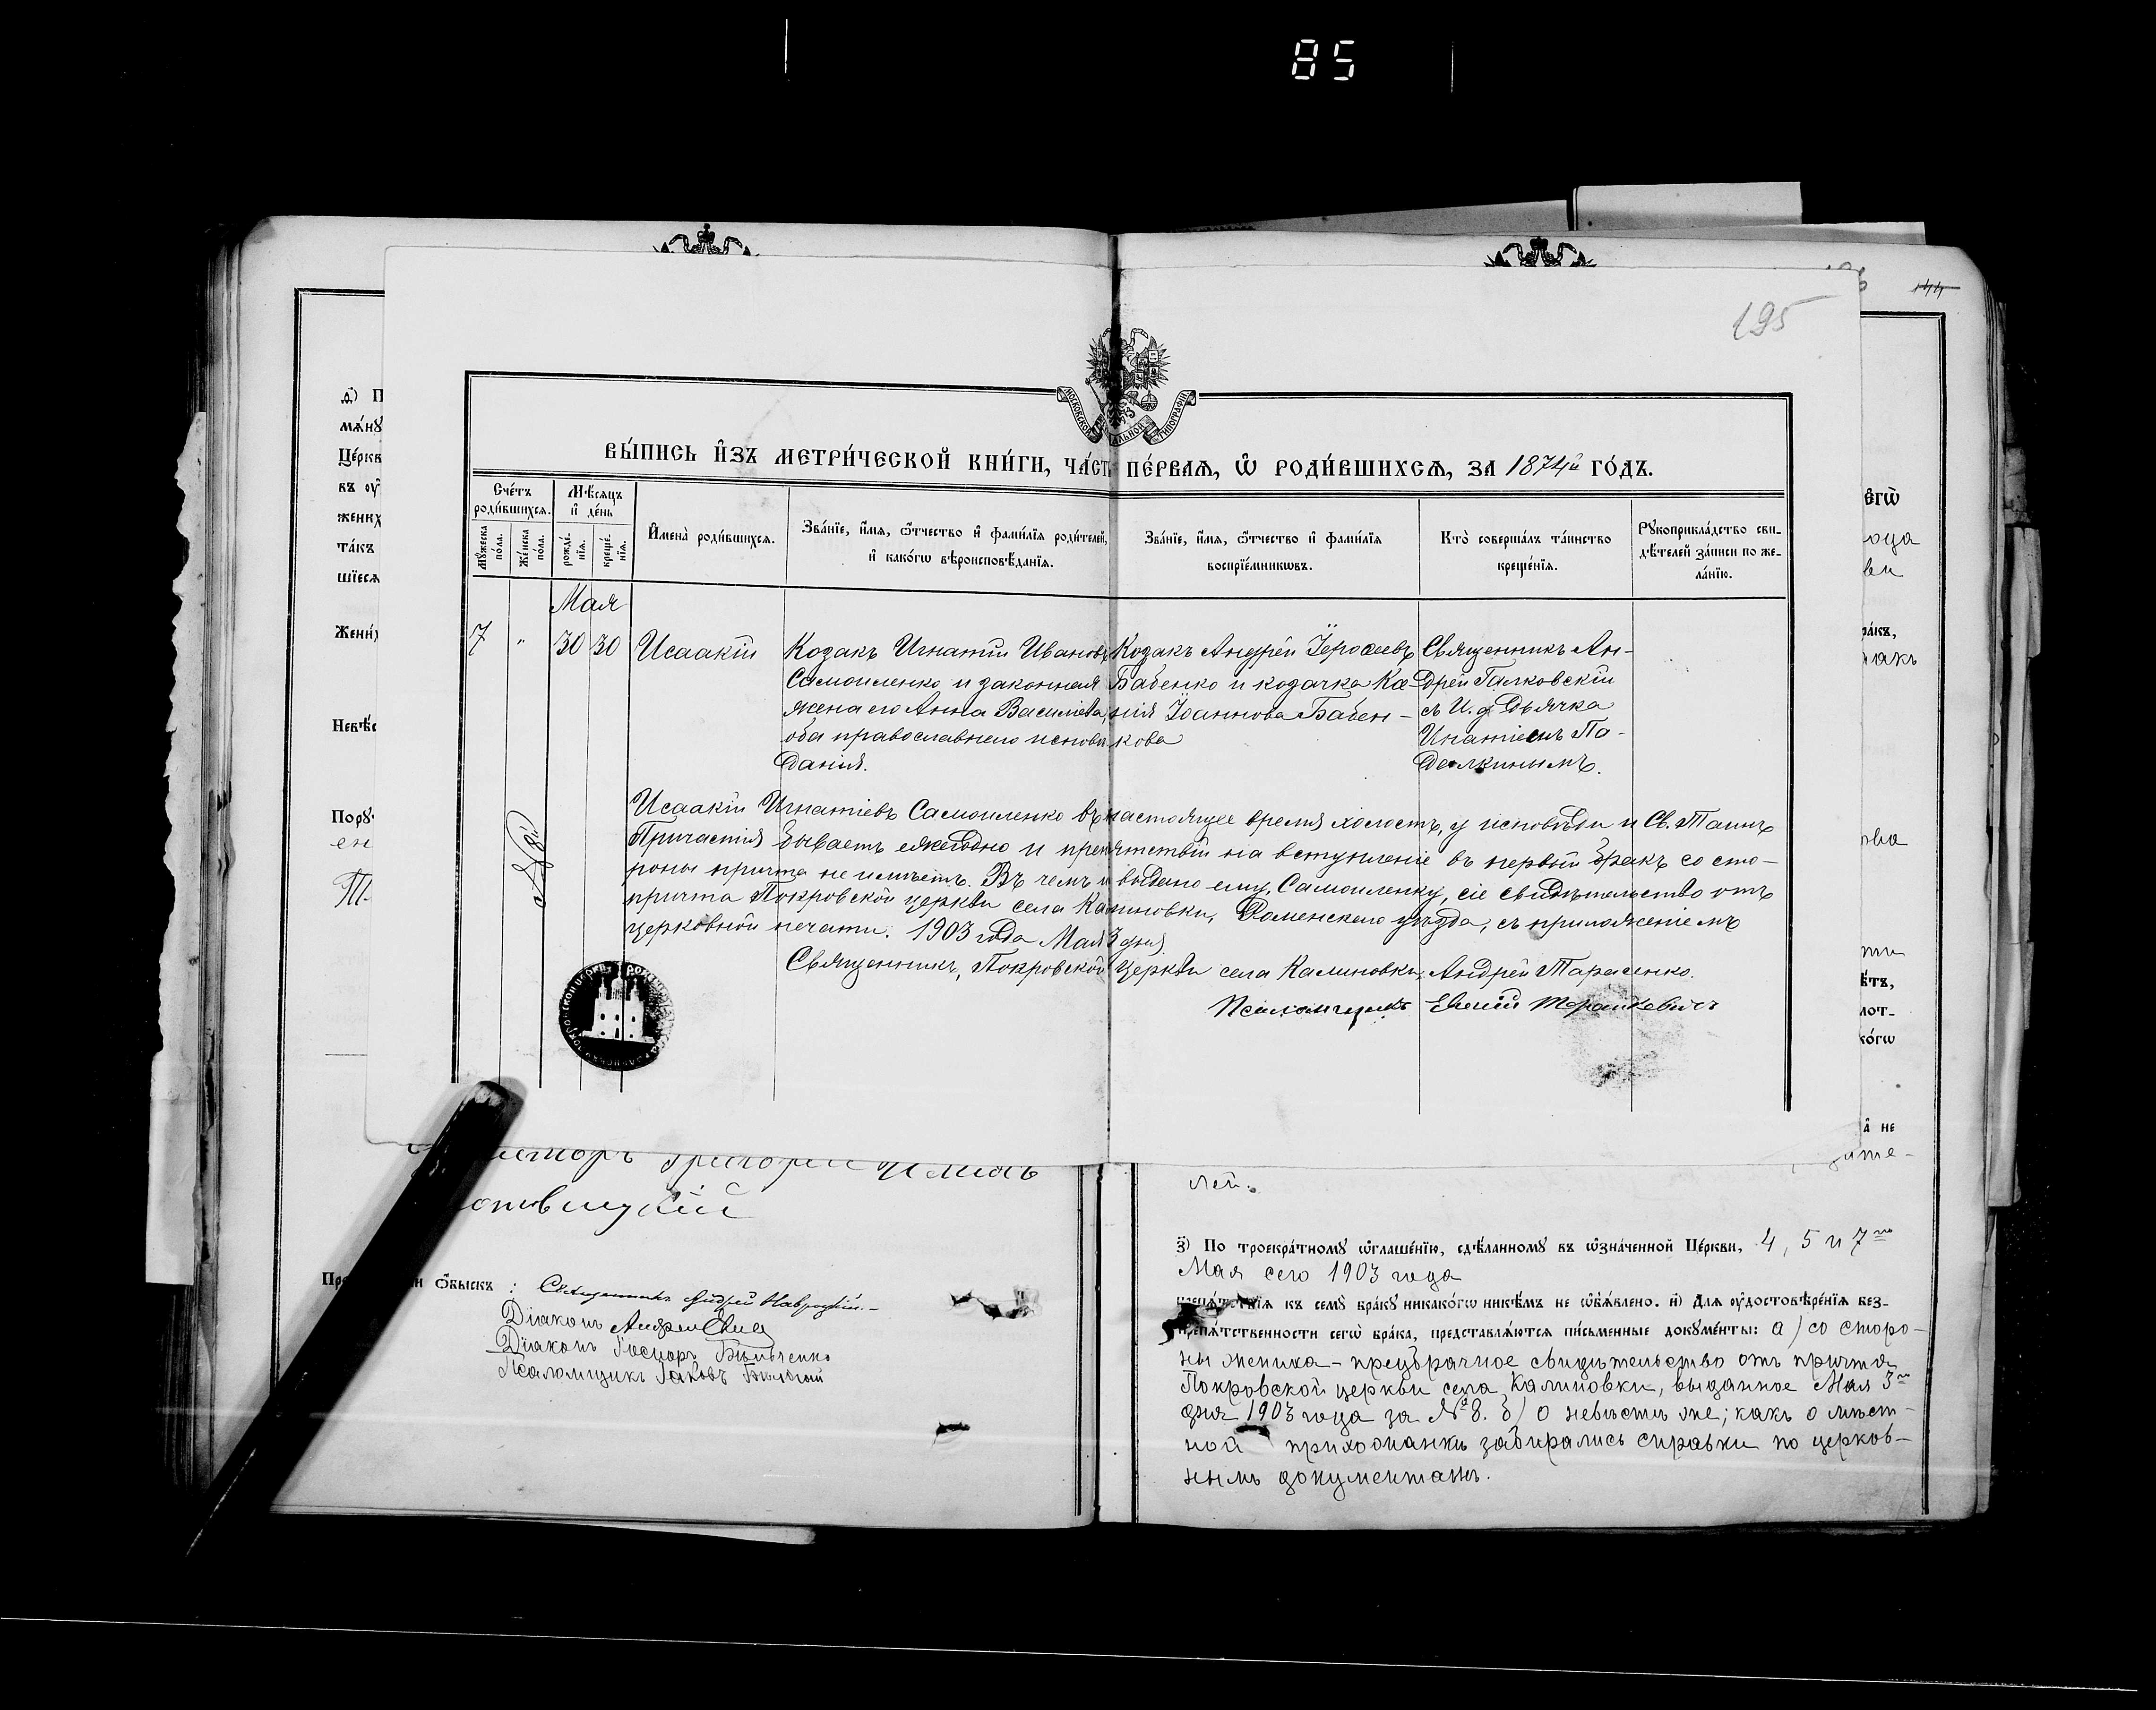 85
195
144
ВЫ́ПИСЬ И҆ЗЪ МЕТРИ́ЧЕСКОЙ КНИ́ГИ, ЧА́СТЬ ПЕ́РВАѦ, Ѡ҆ РОДИ́ВШИХСѦ, ЗА 1874й ГО́ДЪ.
Сче́тъ роди́вшихсѧ.
Мꙋ́жеска по́ла.
Же́нска по́ла.
Мѣ́сѧцъ и҆ де́нь
рожде́нїѧ.
креще́нїѧ.
И҆мена̀ роди́вшихсѧ.
Зва́нїе, и҆́мѧ, ѻ҆́тчество и҆ фами́лїѧ роди́телей,
и҆ како́гѡ вѣроисповѣ́данїѧ.
Зва́нїе, и҆́мѧ, ѻ҆́тчество и҆ фами́лїѧ
воспрїе́мникѡвъ.
Кто̀ соверша́лъ та́инство
креще́нїѧ.
Рꙋкоприкла́дство сви-
дѣ́телей за́писи по же-
ла́нїю.
Мая
7 " 30 30 Исаакій
Козакъ Игнатій Ивановъ
Самойленко и законная
жена его Анна Васильева,
оба православнаго испове-
данія.
Козакъ Андрей Іеросеевъ
Бабенко и козачка Ксе-
нія Іоаннова Бабен-
кова
Священникъ Ан-
дрей Галковскій
съ И. д. Дьячка
Игнатіемъ Па-
далкинымъ.
Исаакій Игнатіевъ Самойленко въ настоящее время холостъ, у исповѣди и Св. Таинъ
Причастія бываетъ ежегодно и препятствій на вступленіе въ первый бракъ со сто-
роны причта не имѣетъ. Въ чемъ и выдано ему, Самойленку, сіе свидѣтельство отъ
причта Покровской церкви села Калиновки, Роменскаго уѣзда, съ приложеніемъ
церковной печати. 1903 года Мая 3 дня
№ 8й
Священникъ, Покровской церкви села Калиновки, Андрей Тарасенко.
Псаломщикъ Евгеній
Пору́ч
Жени́х
Невѣ́с
Діаконъ Андрей
Діаконъ
Псаломщикъ Іаковъ
Священникъ Андрей Навроцкій.
ѻ҆́быскъ :
лей.
з҃) По троекра́тномꙋ ѡ҆глаше́нїю, сдѣ́ланномꙋ въ ѡ҆зна́ченной Це́ркви, 4, 5 и 7го
Мая сего 1903 года
препѧ́тствїѧ къ семꙋ̀ бра́кꙋ никако́гѡ никѣ́мъ не ѡ҆б̾ѧ́влено. и҃) Длѧ ᲂу҆достовѣре́нїѧ без-
препѧ́тственности сегѡ̀ бра́ка, представлѧ́ютсѧ пи́сьменные докꙋме́нты: а) со сторо-
ны жениха – предбрачное свидѣтельство отъ причта
Покровской церкви села Калиновки, выданное Мая 3го
дня 1903 года за № 8. б) о невѣстѣ же; какъ о мѣст-
ной прихожанкѣ забирались справки по церков-
нымъ документамъ.